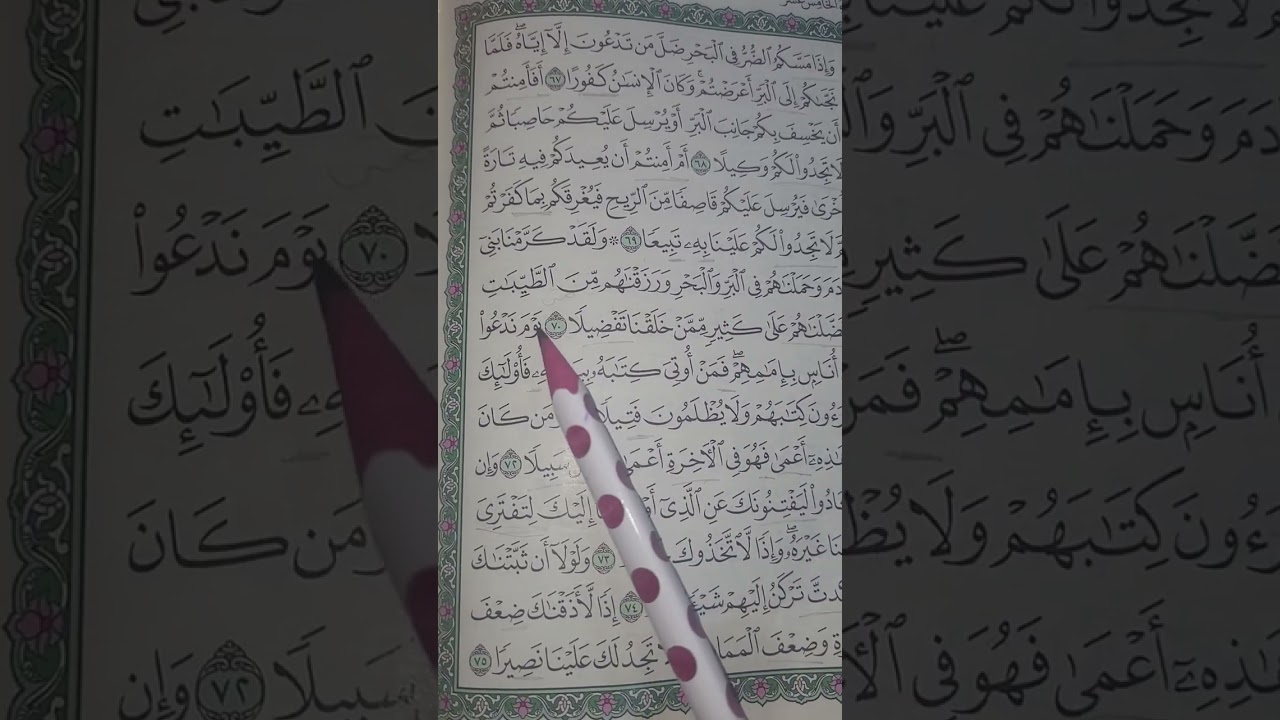 وَإِذَا مَسَّكُمُ ٱلضُّرُّ فِى ٱلْبَحْرِ ضَلَّ مَن تَدْعُونَ إِلَّآ إِيَّاهُ ۖ فَلَمَّا
نَجَّىٰكُمْ إِلَى ٱلْبَرِّ أَعْرَضْتُمْ ۚ وَكَانَ ٱلْإِنسَـٰنُ كَفُورًا ٦٧ أَفَأَمِنتُمْ
أَن يَخْسِفَ بِكُمْ جَانِبَ ٱلْبَرِّ أَوْ يُرْسِلَ عَلَيْكُمْ حَاصِبًا ثُمَّ
لَا تَجِدُوا۟ لَكُمْ وَكِيلًا ٦٨ أَمْ أَمِنتُمْ أَن يُعِيدَكُمْ فِيهِ تَارَةً
خْرَىٰ فَيُرْسِلَ عَلَيْكُمْ قَاصِفًا مِّنَ ٱلرِّيحِ فَيُغْرِقَكُم بِمَا كَفَرْتُمْ
مَّ لَا تَجِدُوا۟ لَكُمْ عَلَيْنَا بِهِۦ تَبِيعًا ٦٩ ۞ وَلَقَدْ كَرَّمْنَا بَنِىٓ
دَمَ وَحَمَلْنَـٰهُمْ فِى ٱلْبَرِّ وَٱلْبَحْرِ وَرَزَقْنَـٰهُم مِّنَ ٱلطَّيِّبَـٰتِ
ضَّلْنَـٰهُمْ عَلَىٰ كَثِيرٍ مِّمَّنْ خَلَقْنَا تَفْضِيلًا ٧٠ يَوْمَ نَدْعُوا۟
أُنَاسٍۭ بِإِمَـٰمِهِمْ ۖ فَمَنْ أُوتِىَ كِتَـٰبَهُۥ فَأُو۟لَـٰٓئِكَ
رَءُونَ كِتَـٰبَهُمْ وَلَا يُظْلَمُونَ فَتِيلًا مَن كَانَ
هَـٰذِهِۦٓ أَعْمَىٰ فَهُوَ فِى ٱلْـَٔاخِرَةِ أَعْمَىٰ سَبِيلًا ٧٢ وَإِن
ادُوا۟ لَيَفْتِنُونَكَ عَنِ ٱلَّذِىٓ إِلَيْكَ لِتَفْتَرِىَ
نَا غَيْرَهُۥ ۖ وَإِذًا لَّٱتَّخَذُوكَ ٧٣ وَلَوْلَآ أَن ثَبَّتْنَـٰكَ
كِدتَّ تَرْكَنُ إِلَيْهِمْ ٧٤ إِذًا لَّأَذَقْنَـٰكَ ضِعْفَ
ةِ وَضِعْفَ تَجِدُ لَكَ عَلَيْنَا نَصِيرًا ٧٥